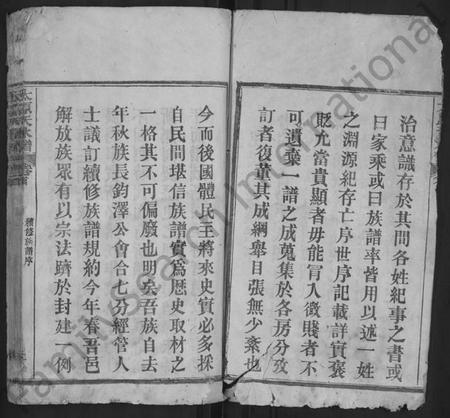 治意識存於其間各姓紀事之書或
曰家乘或曰族譜率皆用以述一姓
之淵源紀存亡序世序記載詳實褒
貶允當貴顯者毋能冒入微賤者不
可遺棄一譜之成蒐集於各房分攷
訂者復董其成綱舉目張無少紊也
今而後國體民主將來史實必多採
自民間堪信族譜實爲歷史取材之
一格其不可偏廢也明矣吾族自去
年秋族長鈞澤公會合七分經管人
士議訂續修族譜規約今年春吾邑
解放族眾有以宗法躋於封建一例
續修族譜序
familysearch International